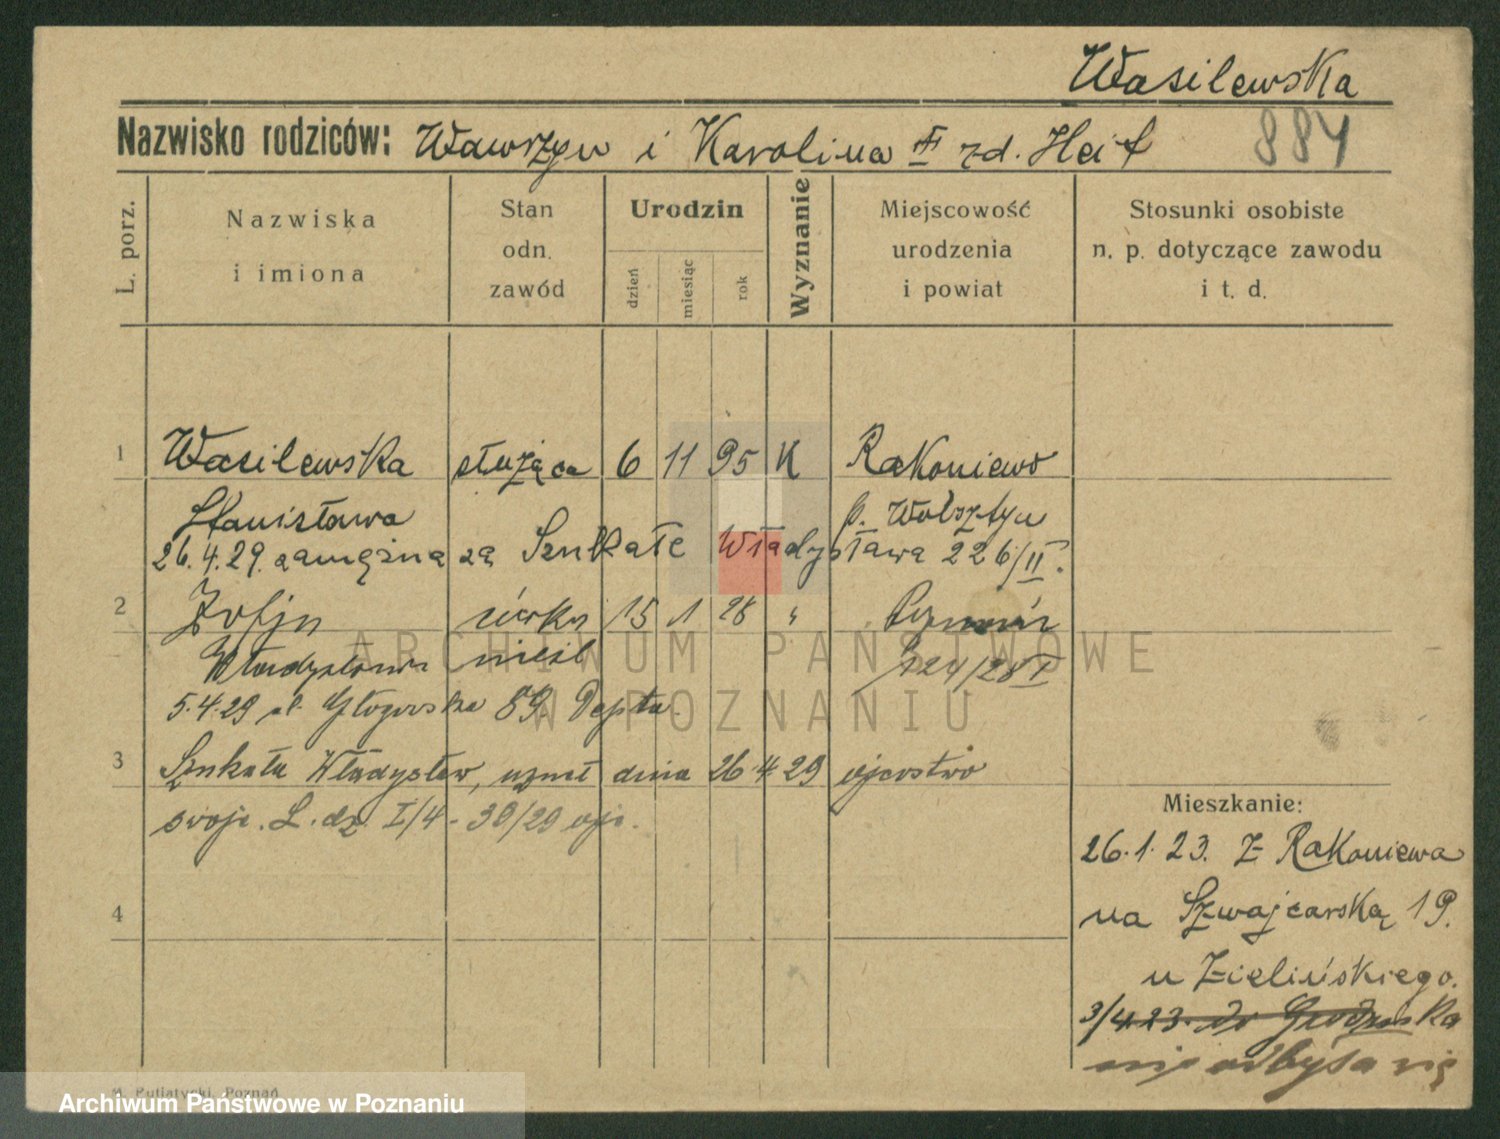 Wasilewska
Nazwisko rodziców: Wawrzyn i Karolina zd. Heif
884
L. porz.
Nazwiska
i imiona
Stan
odn.
zawód
Urodzin
dzień
miesiąc
rok
Wyznanie
Miejscowość
urodzenia
i powiat
Stosunki osobiste
n. p. dotyczące zawodu
i t. d.
1 Wasilewska służąca 6 11 95 K Rakoniewo
Stanisława p. Wolsztyn
26.4.29. zamężna za Szukałę Władysława 226/II.
2 Zofja córka 15 1 28 " Poznań
Władysława nieśl 124/28 I
5.4.29 ul. Głogowska 89 Depta
3 Szukała Władysław, uznał dnia 26 4 29 ojcostwo
swoje. L. dz. I/4 - 39/29 ojc.
4
Mieszkanie:
26.1.23. Z Rakoniewa
na Szwajcarską 19.
u Zielińskiego.
3/4.23. do Grodziska
nie odbyła się
ARCHIWUM PAŃSTWOWE
W POZNANIU
M. Putiatycki, Poznań
Archiwum Państwowe w Poznaniu